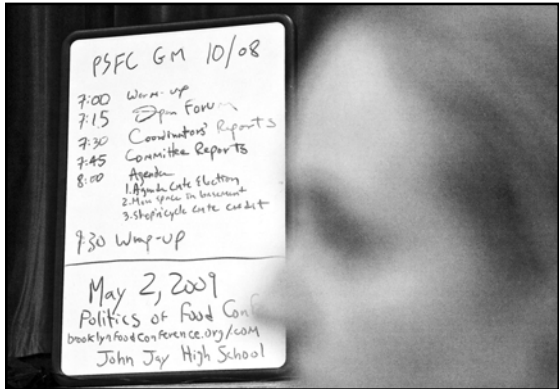 PSFC GM 10/08
7:00 Warm-up
7:15 Open Forum
7:30 Coordinators' Reports
7:45 Committee Reports
8:00 Agenda
1. Agenda Cmte Election
2. More space in basement
3. Shop + cycle cmte credit
9:30 Wrap-up
May 2, 2009
Politics of Food Conf
brooklynfoodconference.org/com
John Jay High School